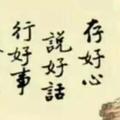 存好心
說好話
行好事